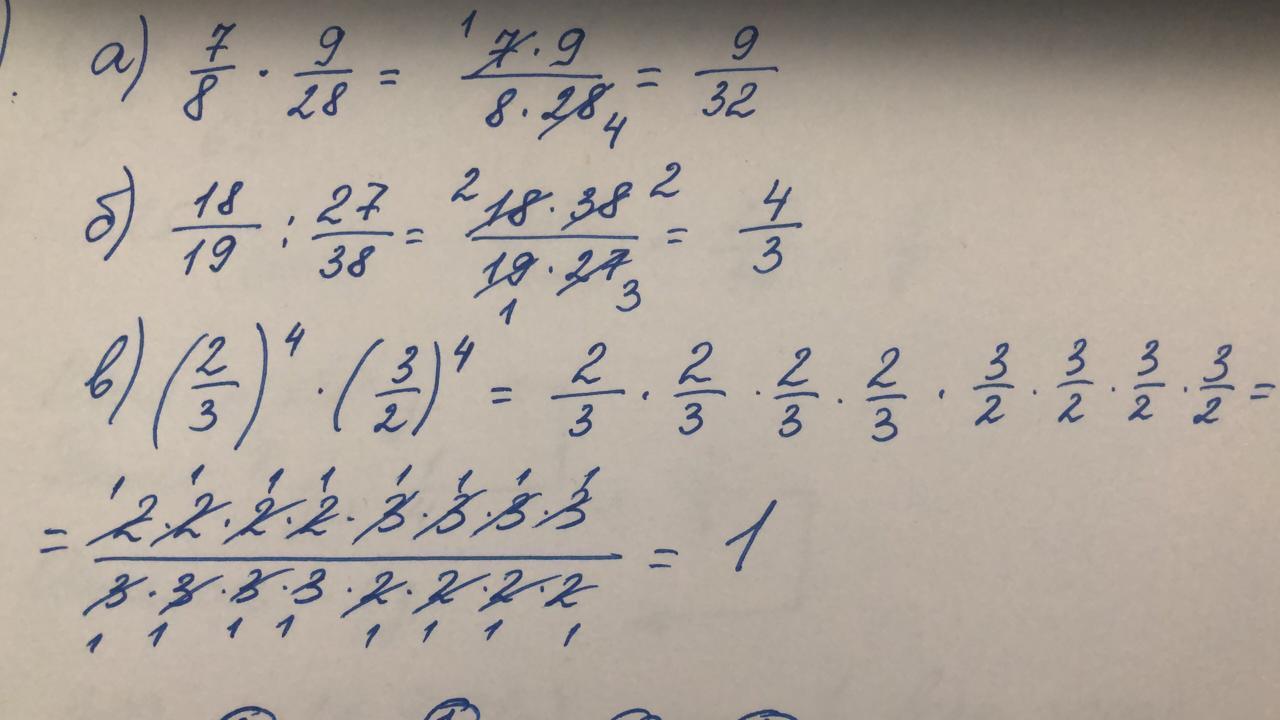 а) 7/8 · 9/28 = 1 7·9 / 8·28 4 = 9/32
б) 18/19 : 27/38 = 2 18·38 2 / 19·27 1 3 = 4/3
в) (2/3)^4 · (3/2)^4 = 2/3 · 2/3 · 2/3 · 2/3 · 3/2 · 3/2 · 3/2 · 3/2 =
1 1 1 1 1 1 1 1
= 2·2·2·2·3·3·3·3 / 3·3·3·3·2·2·2·2 = 1
1 1 1 1 1 1 1 1